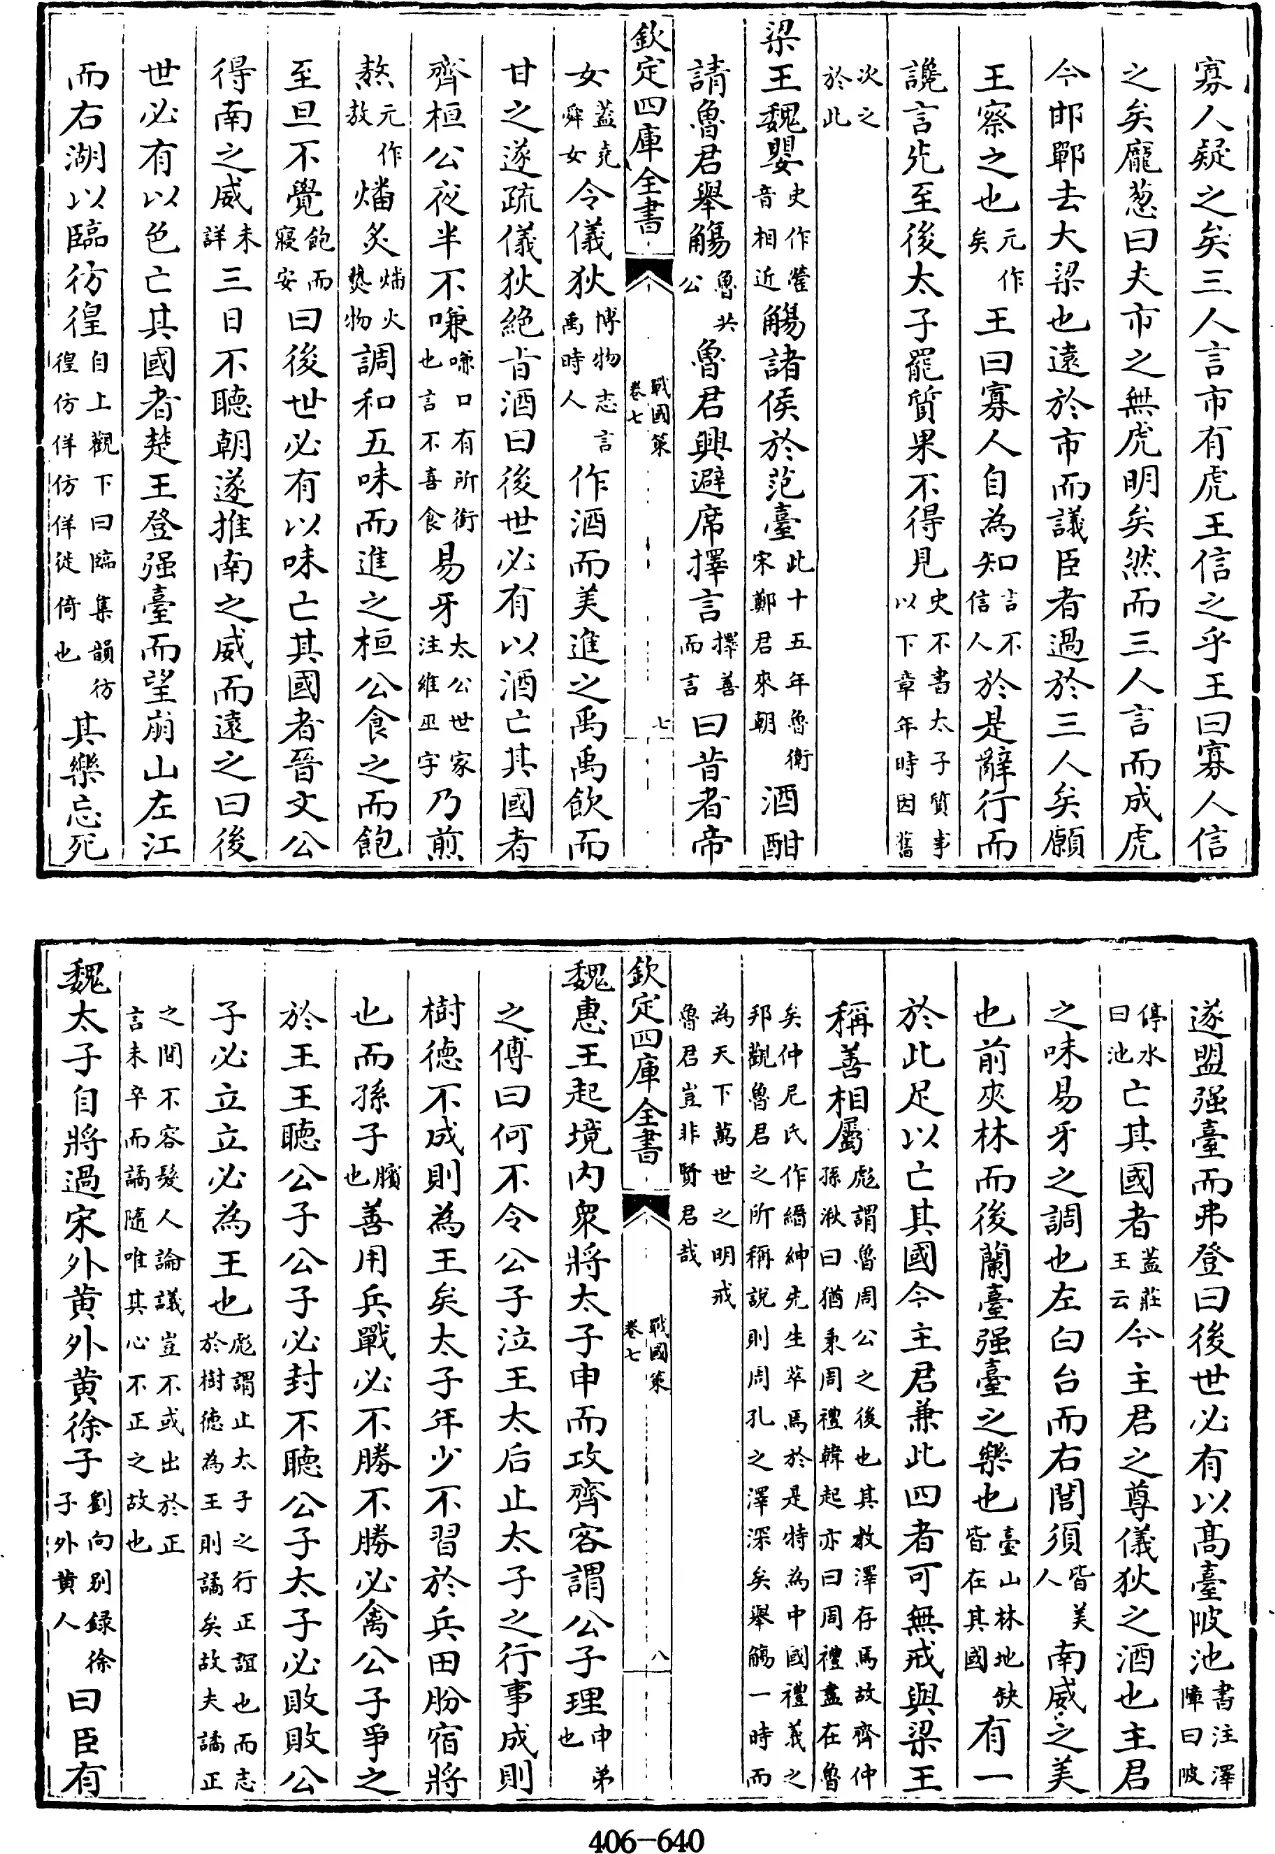 寡人疑之矣三人言市有虎王信之乎王曰寡人信
之矣龐葱曰夫市之無虎明矣然而三人言而成虎
今邯鄲去大梁也遠於市而議臣者過於三人矣願
王察之也元作矣王曰寡人自為知言不信人於是辭行而
讒言先至後太子罷質果不得見史不書太子質事以下章年時因舊
次之於此
梁王魏嬰史作罃音相近觴諸侯於范臺此十五年魯衛宋鄭君來朝酒酣
請魯君舉觴魯共公魯君興避席擇言擇善而言曰昔者帝
欽定四庫全書 戰國策卷七 七
女蓋堯舜女令儀狄博物志言禹時人作酒而美進之禹禹飲而
甘之遂疏儀狄絶旨酒曰後世必有以酒亡其國者
齊桓公夜半不嗛嗛口有所銜也言不喜食易牙太公世家注雍巫字乃煎
熬元作敖燔炙燔火爇物調和五味而進之桓公食之而飽
至旦不覺飽而寢安曰後世必有以味亡其國者晉文公
得南之威未詳三日不聽朝遂推南之威而遠之曰後
世必有以色亡其國者楚王登强臺而望崩山左江
而右湖以臨彷徨自上觀下曰臨集韻彷徨仿佯仿佯徙倚也其樂忘死
遂盟强臺而弗登曰後世必有以髙臺陂池書注澤障曰陂
停水曰池亡其國者蓋莊王云今主君之尊儀狄之酒也主君
之味易牙之調也左白台而右閭須皆美人南威之美
也前夾林而後蘭臺强臺之樂也臺山林地缺皆在其國有一
於此足以亡其國今主君兼此四者可無戒與梁王
稱善相屬彪謂魯周公之後也其教澤存焉故齊仲孫湫曰猶秉周禮韓起亦曰周禮盡在魯
矣仲尼氏作縉紳先生萃焉於是特為中國禮義之邦觀魯君之所稱說則周孔之澤深矣舉觴一時而
為天下萬世之明戒魯君豈非賢君哉
欽定四庫全書 戰國策卷七 八
魏惠王起境内衆將太子申而攻齊客謂公子理申弟也
之傅曰何不令公子泣王太后止太子之行事成則
樹德不成則為王矣太子年少不習於兵田肦宿將
也而孫子臏也善用兵戰必不勝不勝必禽公子爭之
於王王聽公子公子必封不聽公子太子必敗敗公
子必立立必為王也彪謂止太子之行正誼也而志於樹德為王則譎矣故夫譎正
之間不容髮人論議豈不或出於正言未卒而譎隨唯其心不正之故也
魏太子自將過宋外黄外黄徐子劉向别錄徐子外黄人曰臣有
406-640